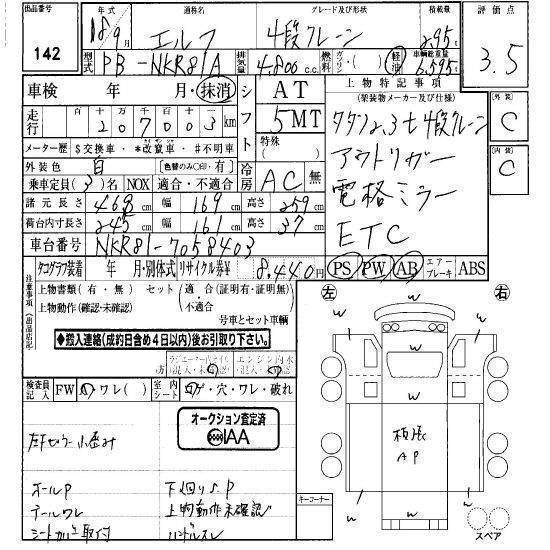 出品番号
142
年式 通称名 グレード及び形状 積載量 評価点
18/9月 エルフ 4段クレーン 2.95t 3.5
型式 PB-NKR81A 排気量 4.800c.c. 燃料 ガソリン・( ) 軽油 車輌総重量 6.595t
車検 年 月・抹消 シフト AT 上物特記事項
(架装物メーカー及び仕様) 外装 C
走行 十万千百十 207003km 5MT タダノ2.3t4段クレーン
メーター歴 $交換車・*改竄車・#不明車 特殊( ) アウトリガー 内装 C
外装色 白 (色替のみ○印・有) 冷房 AC 無 電格ミラー
乗車定員(3)名 NOX 適合・不適合
諸元長さ 468cm 幅 169cm 高さ 259cm ETC
荷台内寸長さ 245cm 幅 161cm 高さ 37cm
車台番号 NKR81-7058403 PS PW AB エアーブレーキ ABS
注意事項(出品店記)
タコグラフ装着 年 月・別体式 リサイクル券¥ 8.440円
上物書類(有・無) セット(適合(証明有・証明無)・不適合) 左 右
上物動作(確認・未確認) 号車とセット車輌
◆搬入連絡(成約日含め4日以内)後お引取り下さい。
検査員記入 FW ワレ( ) 室内シート コゲ・穴・ワレ・破れ
オークション査定済
IAA
左キャビラー小歪み
ホールP 下廻りS.P
テールワレ 上物動作未確認
シートカバー取付 ハンドルスレ
W W W W W W W W
板張
AP
キーコーナー
スペア